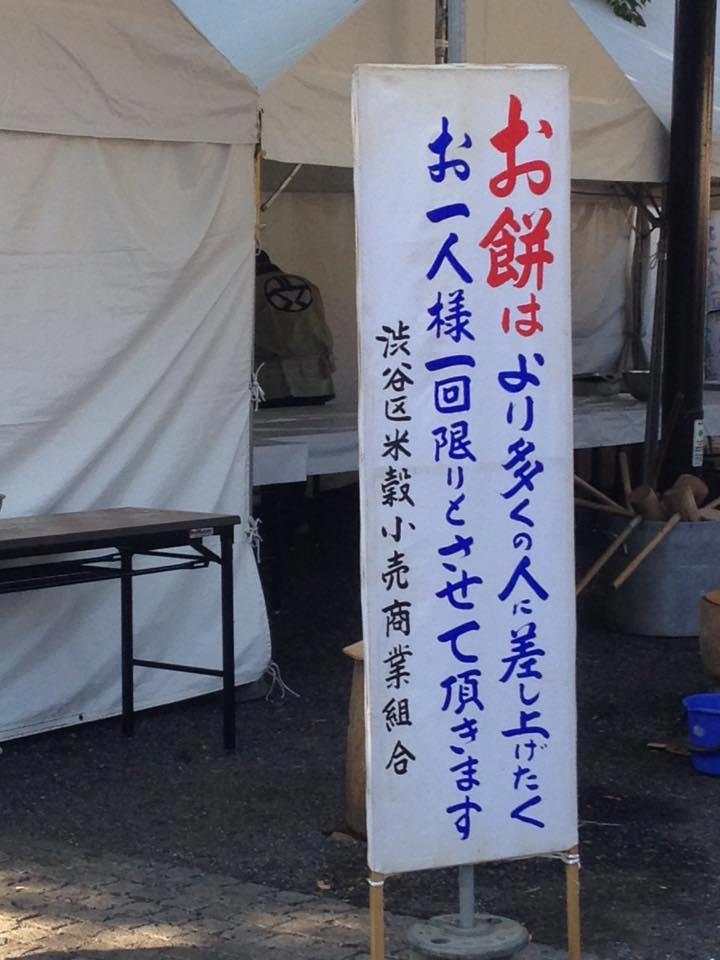 お餅はより多くの人に差し上げたく
お一人様一回限りとさせて頂きます
渋谷区米穀小売商業組合